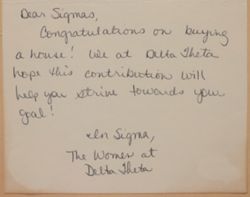 Dear Sigmas,
Congratulations on buying
a house! We at Delta Theta
hope this contribution will
help you strive towards your
goal!
In Sigma,
The Women at
Delta Theta